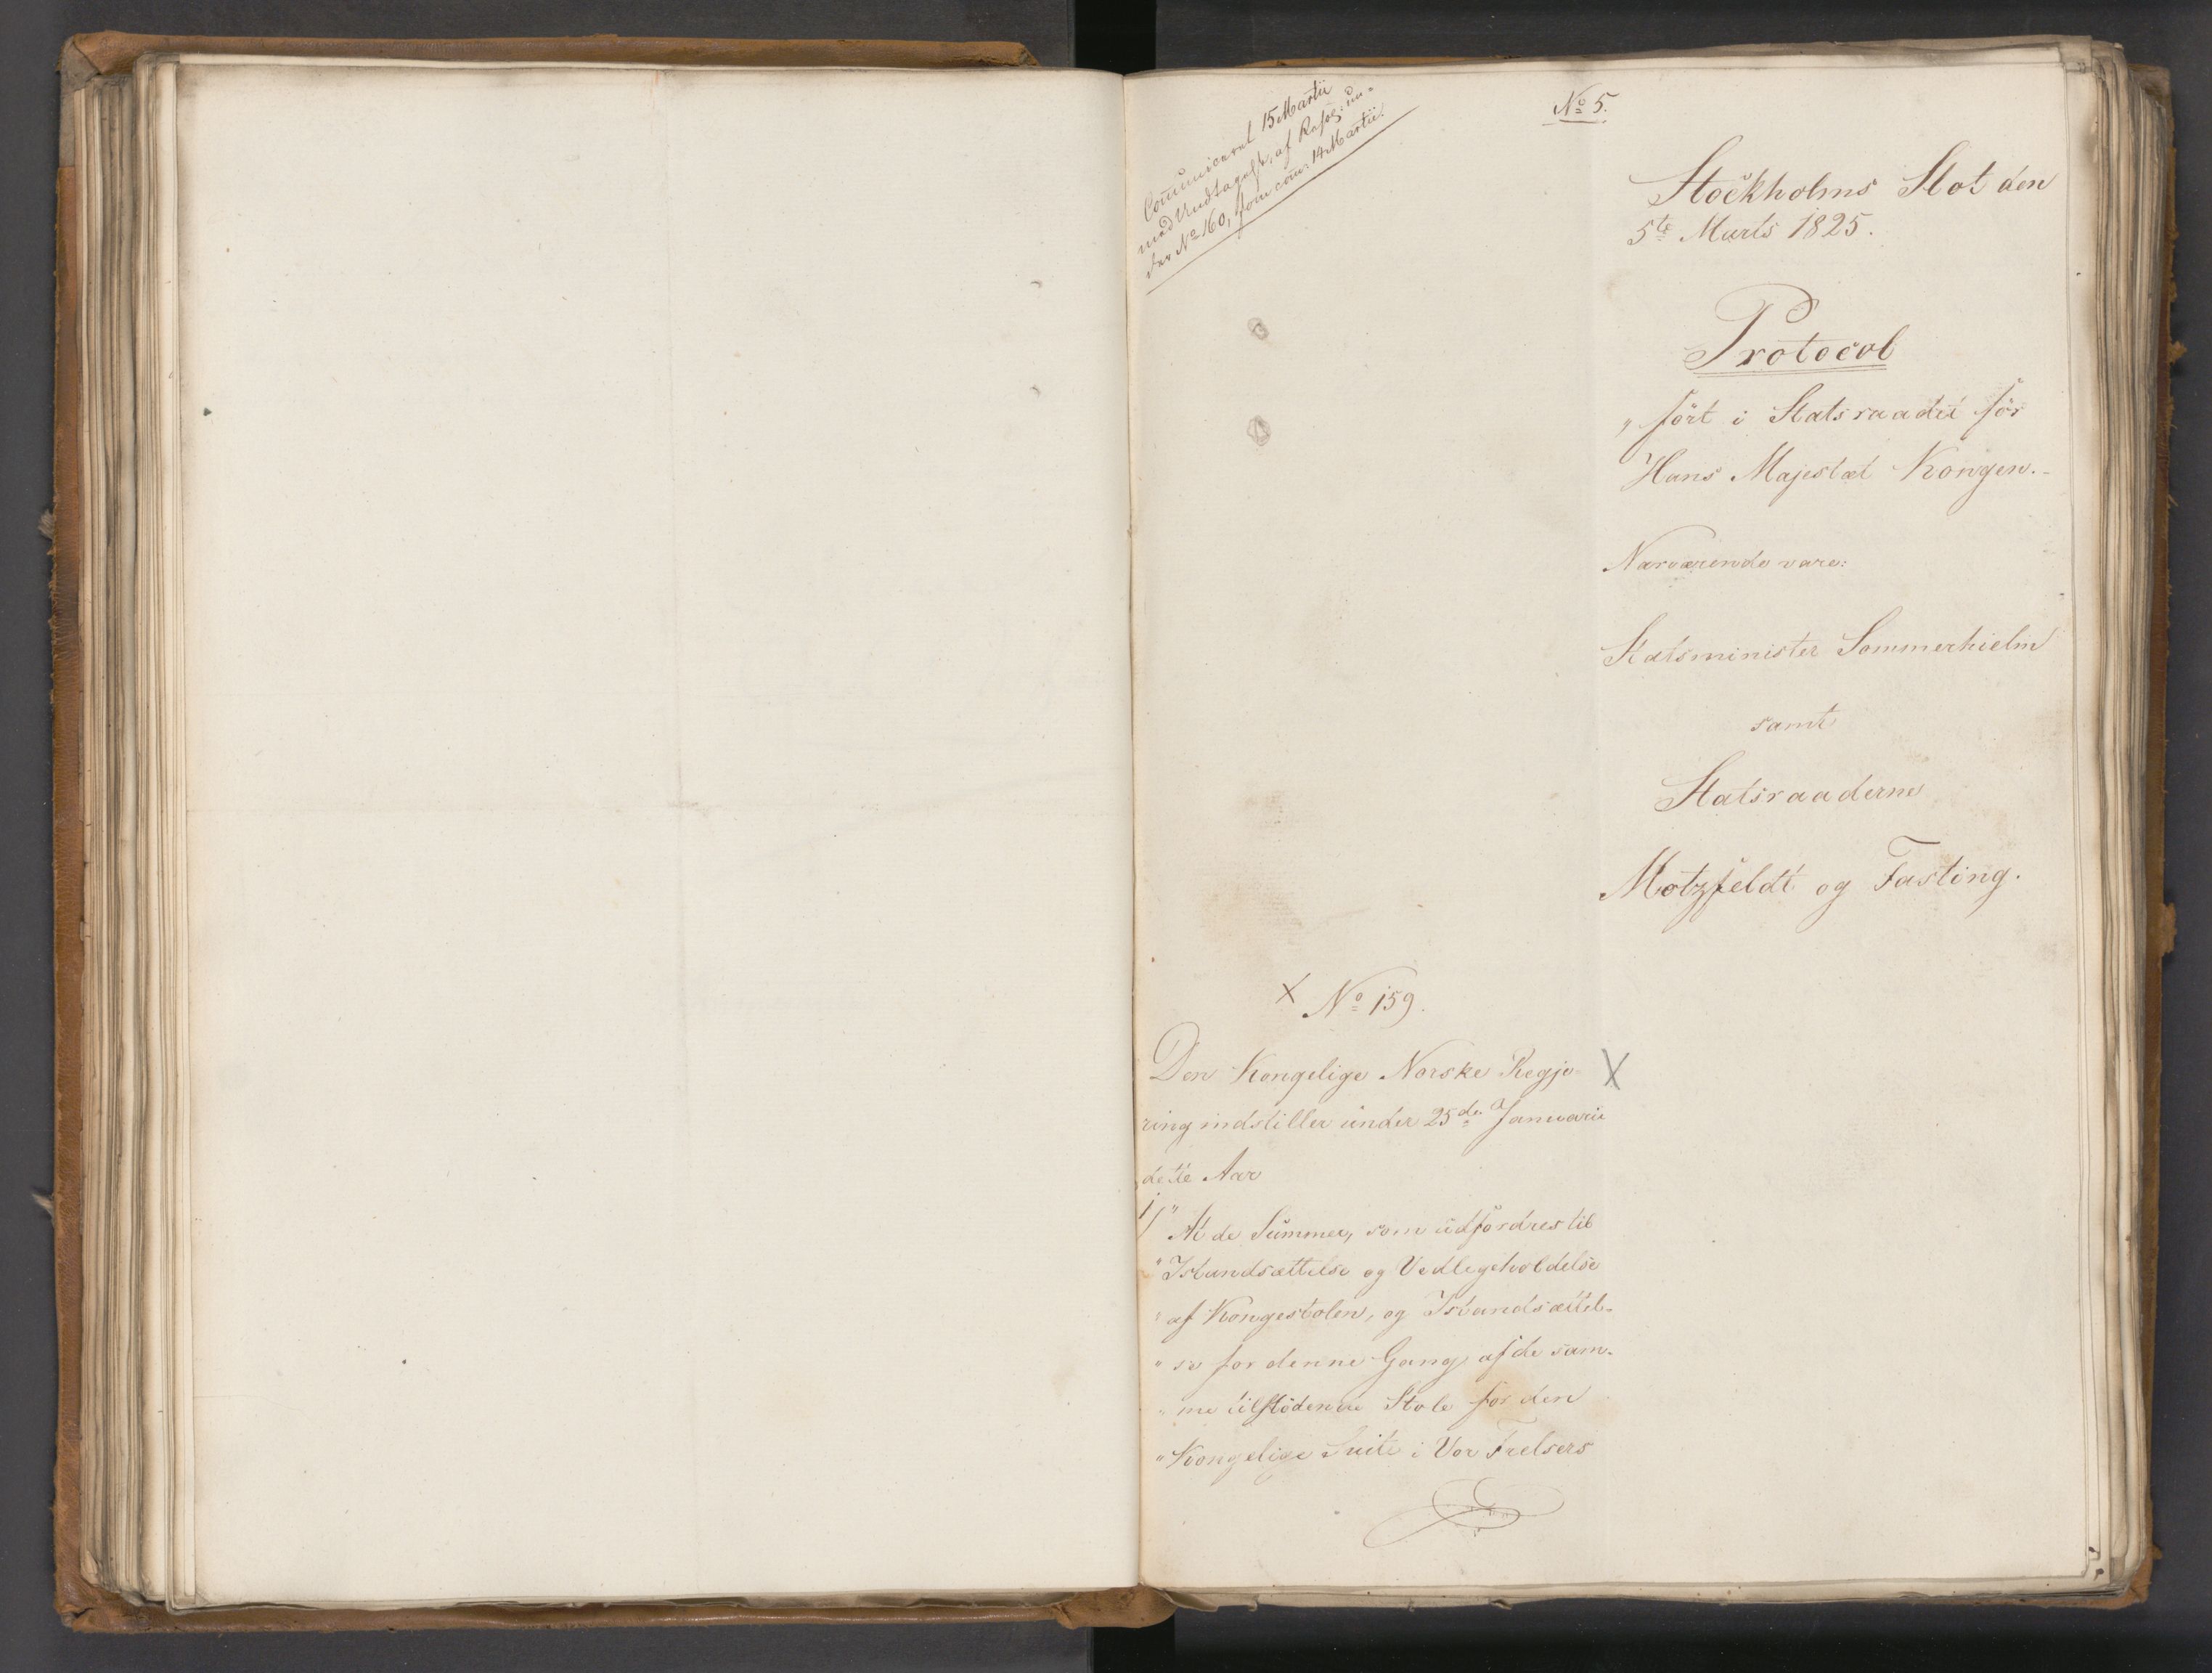 Com̄uniceret 15 Martii
med Undtagelse, af Resol: un-
der No 160, som com: 14 Martii.
No 5.
Stockholms Slot den
5te Marts 1825.
Protocol
„ fört i Statsraadet för
Hans Majestæt Kongen.-
Nærværende vare:
Statsminister Sommerhielm
samt
Statsraaderne
Motzfeldt og Fasting.
X No 159.
Den Kongelige Norske Regje- X
ring indstiller under 25de Januarii
dette Aar
1/ " At de Summer, som udfordres til
" Istandsættelse og Vedligeholdelse
" af Kongestolen, og Istandsættel-
" se for denne Gang af de sam-
" me tilstödende Stole for den
" Kongelige Suite i Vor Frelsers